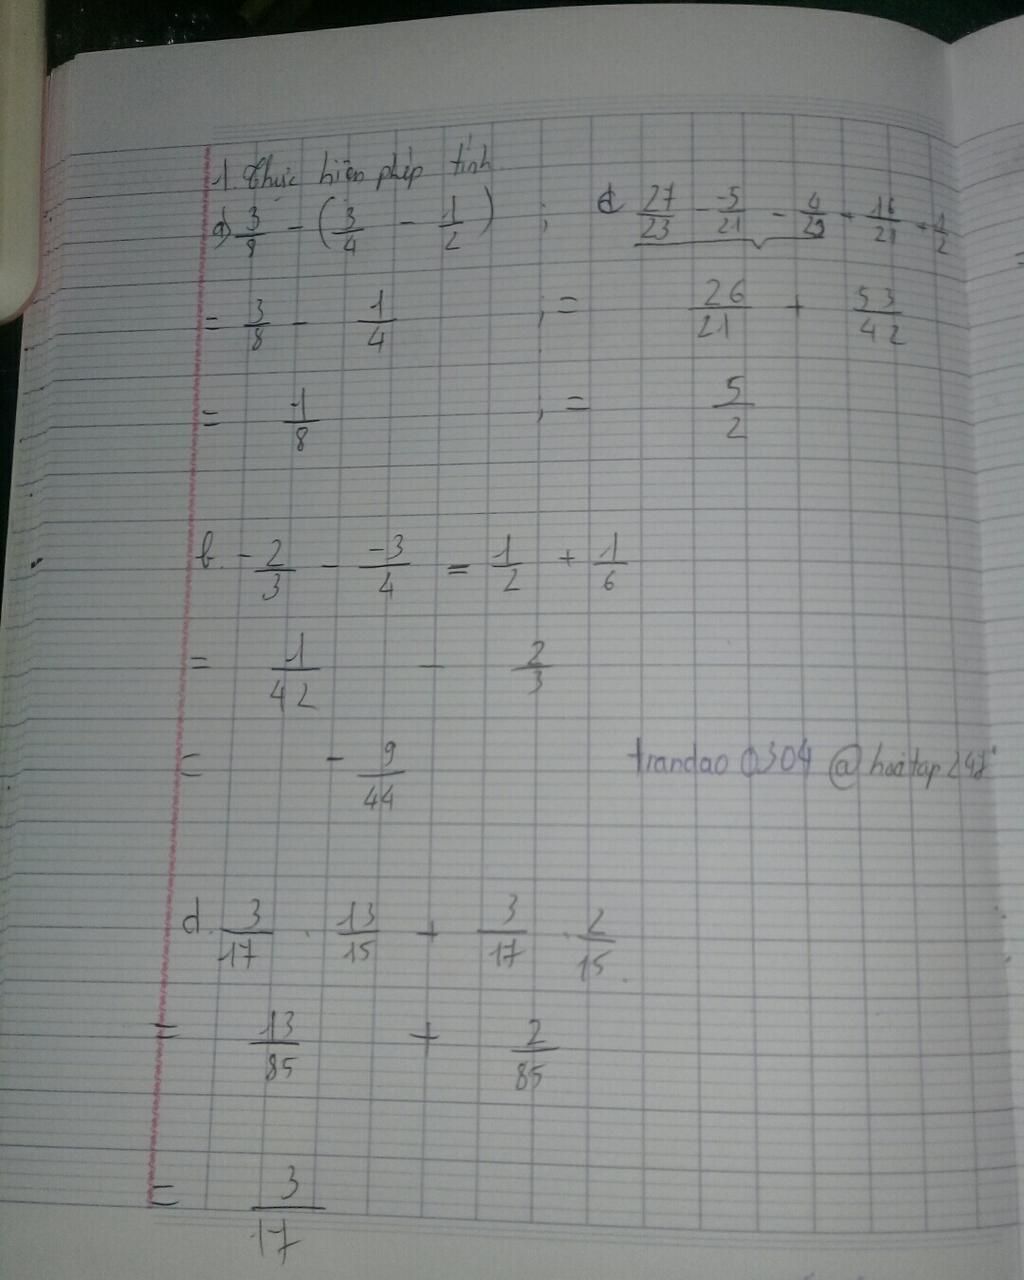 1. Thực hiện phép tính
a) 3/8 - (3/4 - 1/2) ; c 27/23 - -5/21 - 4/23 + 16/21 + 1/2
= 3/8 - 1/4 ; = 26/21 + 53/42
= 1/8 ; = 5/2
b. - 2/3 - -3/4 = 1/2 + 1/6
= 1/42 - 2/3
= - 9/44
trandao0304 @hoitap247
d. 3/17 . 13/15 + 3/17 . 2/15.
= 13/85 + 2/85
= 3/17